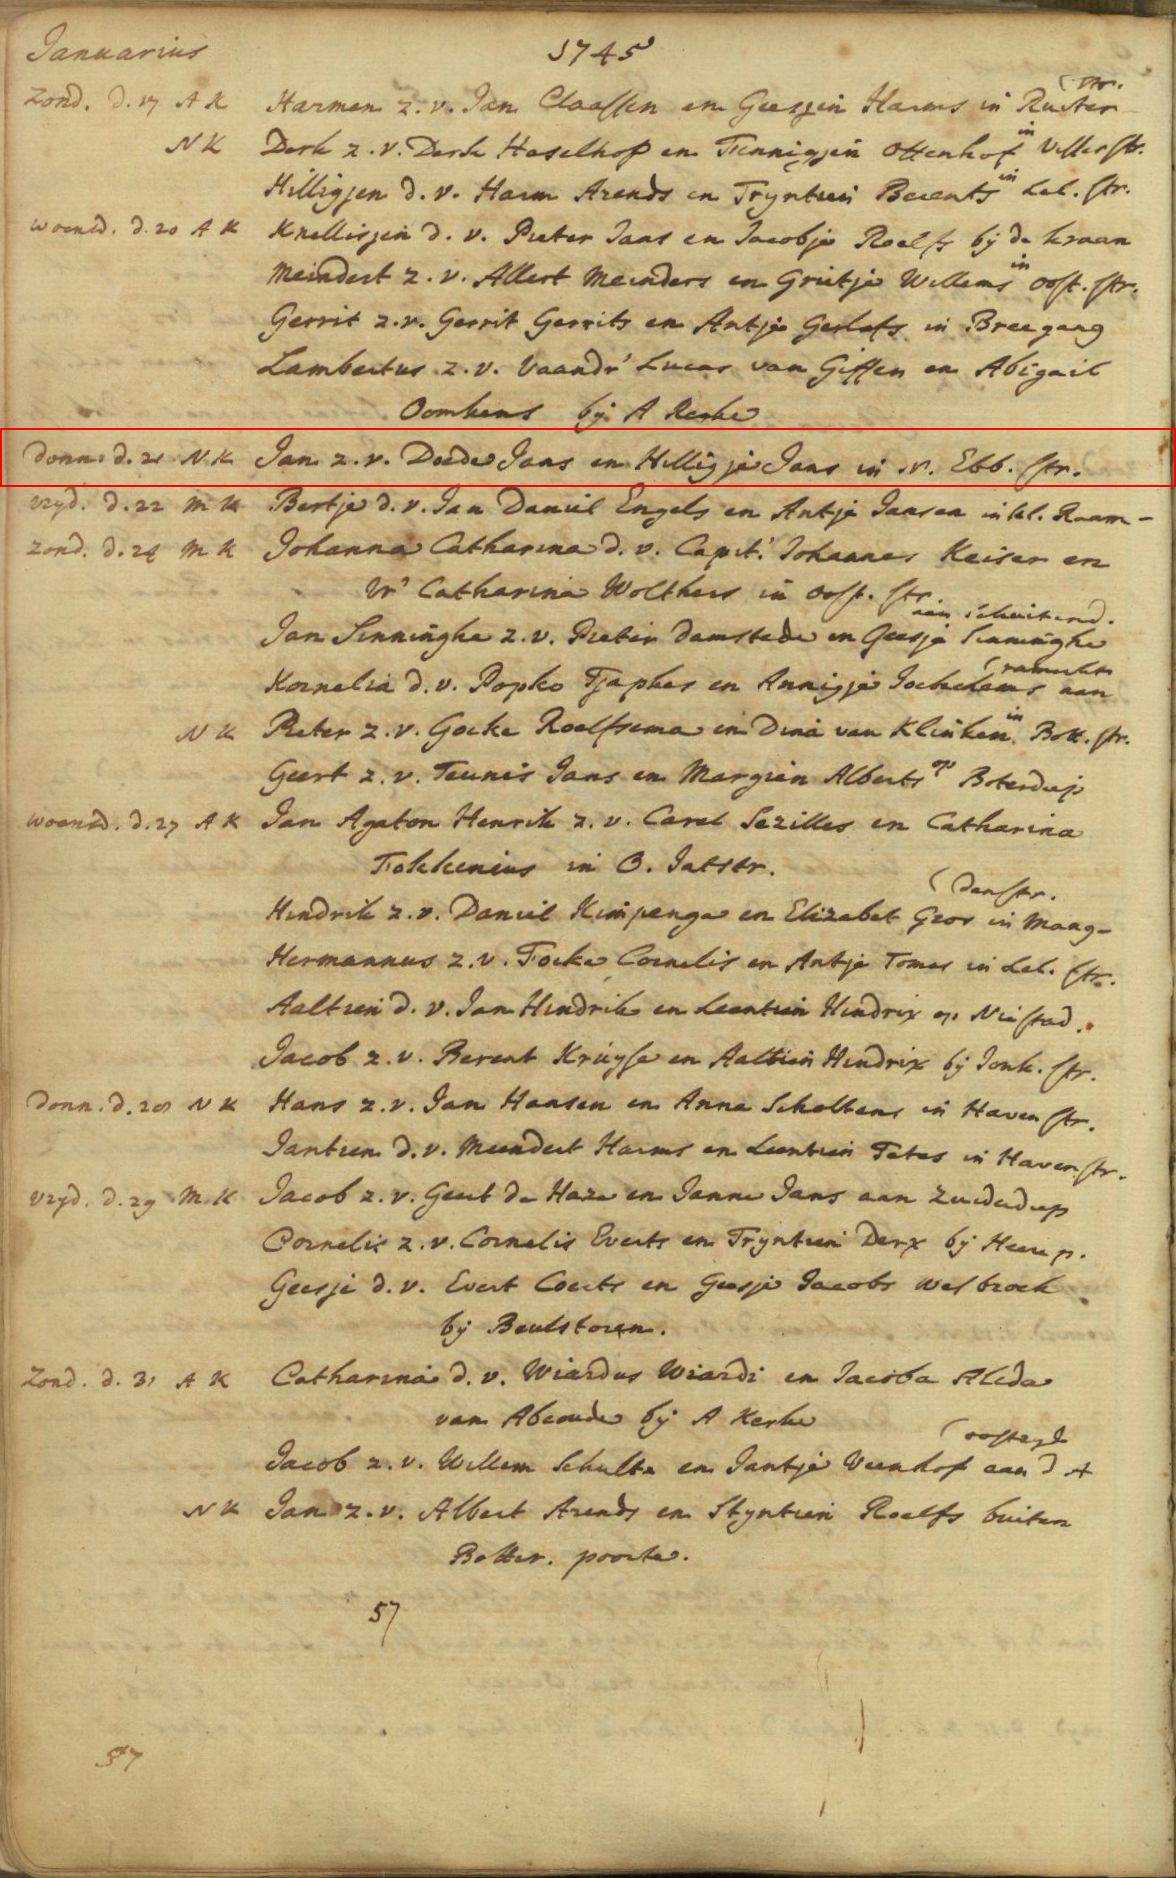 Januarius 1745
(str.
Zond. d. 17 A K Harmen z. v. Jan Claassen en Geesjen Harms in Ruiter
N K Derk z. v. Derk Haselhof en Fennigjen Ottenhof in Vllerstr.
Hilligjen d. v. Harm Arends en Tryntien Berents in Lel. str.
Woensd. d. 20 A K Knellisjen d. v. Pieter Jans en Jacobje Roelfs bij de kraan
Meindert z. v. Allert Meinders en Grietje Willems in Oost. str.
Gerrit z. v. Gerrit Gerrits en Antje Gerlofs in Breegang
Lambertus z. v. Vaandr Lucas van Giffen en Abigail
Oomkens bij A Kerke
Donn. d. 21 N K Jan z. v. Doede Jans en Hilligje Jans in N. Ebb. str.
Vryd. d. 22 M K Bertje d. v. Jan Daniel Engels en Antje Jansen in kl. Raam-
Zond. d. 24 M K Johanna Catharina d. v. Capit. Johannes Keiser en
Vr Catharina Wolthers in Oost. str.
aan Schuitend.
Jan Sinninghe z. v. Pieter Damstede en Geesje Sinninghe
Kornelia d. v. Popko Tjaphes en Annigje Jochchems aan
N K Pieter z. v. Gocke Roelfsema en Dina van Klinken in Bott. str.
Geert z. v. Teunis Jans en Margien Alberts op Boterdiep
Woensd. d. 27 A K Jan Agaton Henrik z. v. Carel Sezilles en Catharina
Fokkenius in O. Jatstr.
(denstr.
Hindrik z. v. Daniel Kimpenga en Elizabet Geor in Maag-
Hermannus z. v. Focke Cornelis en Antje Tomes in Lel. str.
Aaltien d. v. Jan Hindrik en Leentien Hindrix op Niestad.
Jacob z. v. Berent Kruyse en Aaltien Hindrix bij Jonk. str.
Donn. d. 28 N K Hans z. v. Jan Hansen en Anna Scholtens in Haven str.
Jantien d. v. Meindert Harms en Leentien Tetes in Haven str.
Vryd. d. 29 M K Jacob z. v. Geert de Haze en Janne Jans aan Zuiderdiep
Cornelis z. v. Cornelis Everts en Tryntien Derx bij Heere p.
Geesje d. v. Evert Coerts en Geesje Jacobs Welbroek
bij Beulstoren.
Zond. d. 31 A K Catharina d. v. Wiardus Wiardi en Jacoba Alida
van Abcoude bij A Kerke
(oosteyd
Jacob z. v. Willem Schults en Jantje Veenhof aan d A
N K Jan z. v. Albert Arends en Styntien Roelfs buiten
Botter. poorte.
57
57